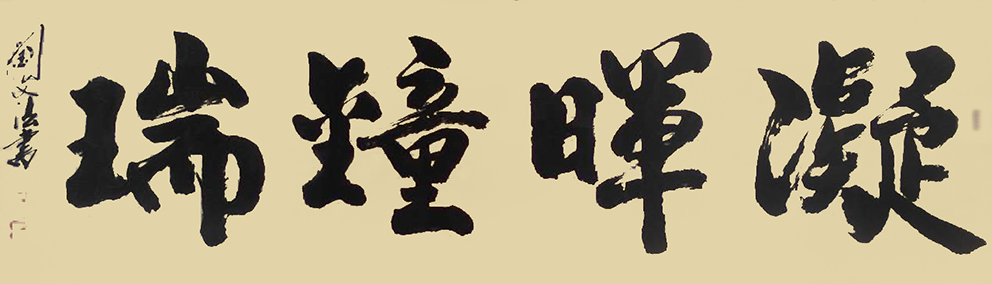 凝暉鐘瑞
劉文法書